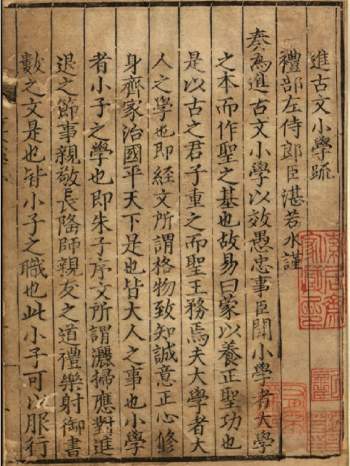 進古文小學疏
禮部左侍郎臣湛若水謹
奏為進古文小學以效愚忠事臣聞小學者大學
之本而作聖之基也故易曰蒙以養正聖功也
是以古之君子重之而聖王務焉夫大學者大
人之學也即經文所謂格物致知誠意正心修
身齊家治國平天下是也皆大人之事也小學
者小子之學也即朱子序文所謂灑掃應對進
退之節事親敬長隆師親友之道禮樂射御書
數之文是也皆小子之職也此小子可以服行